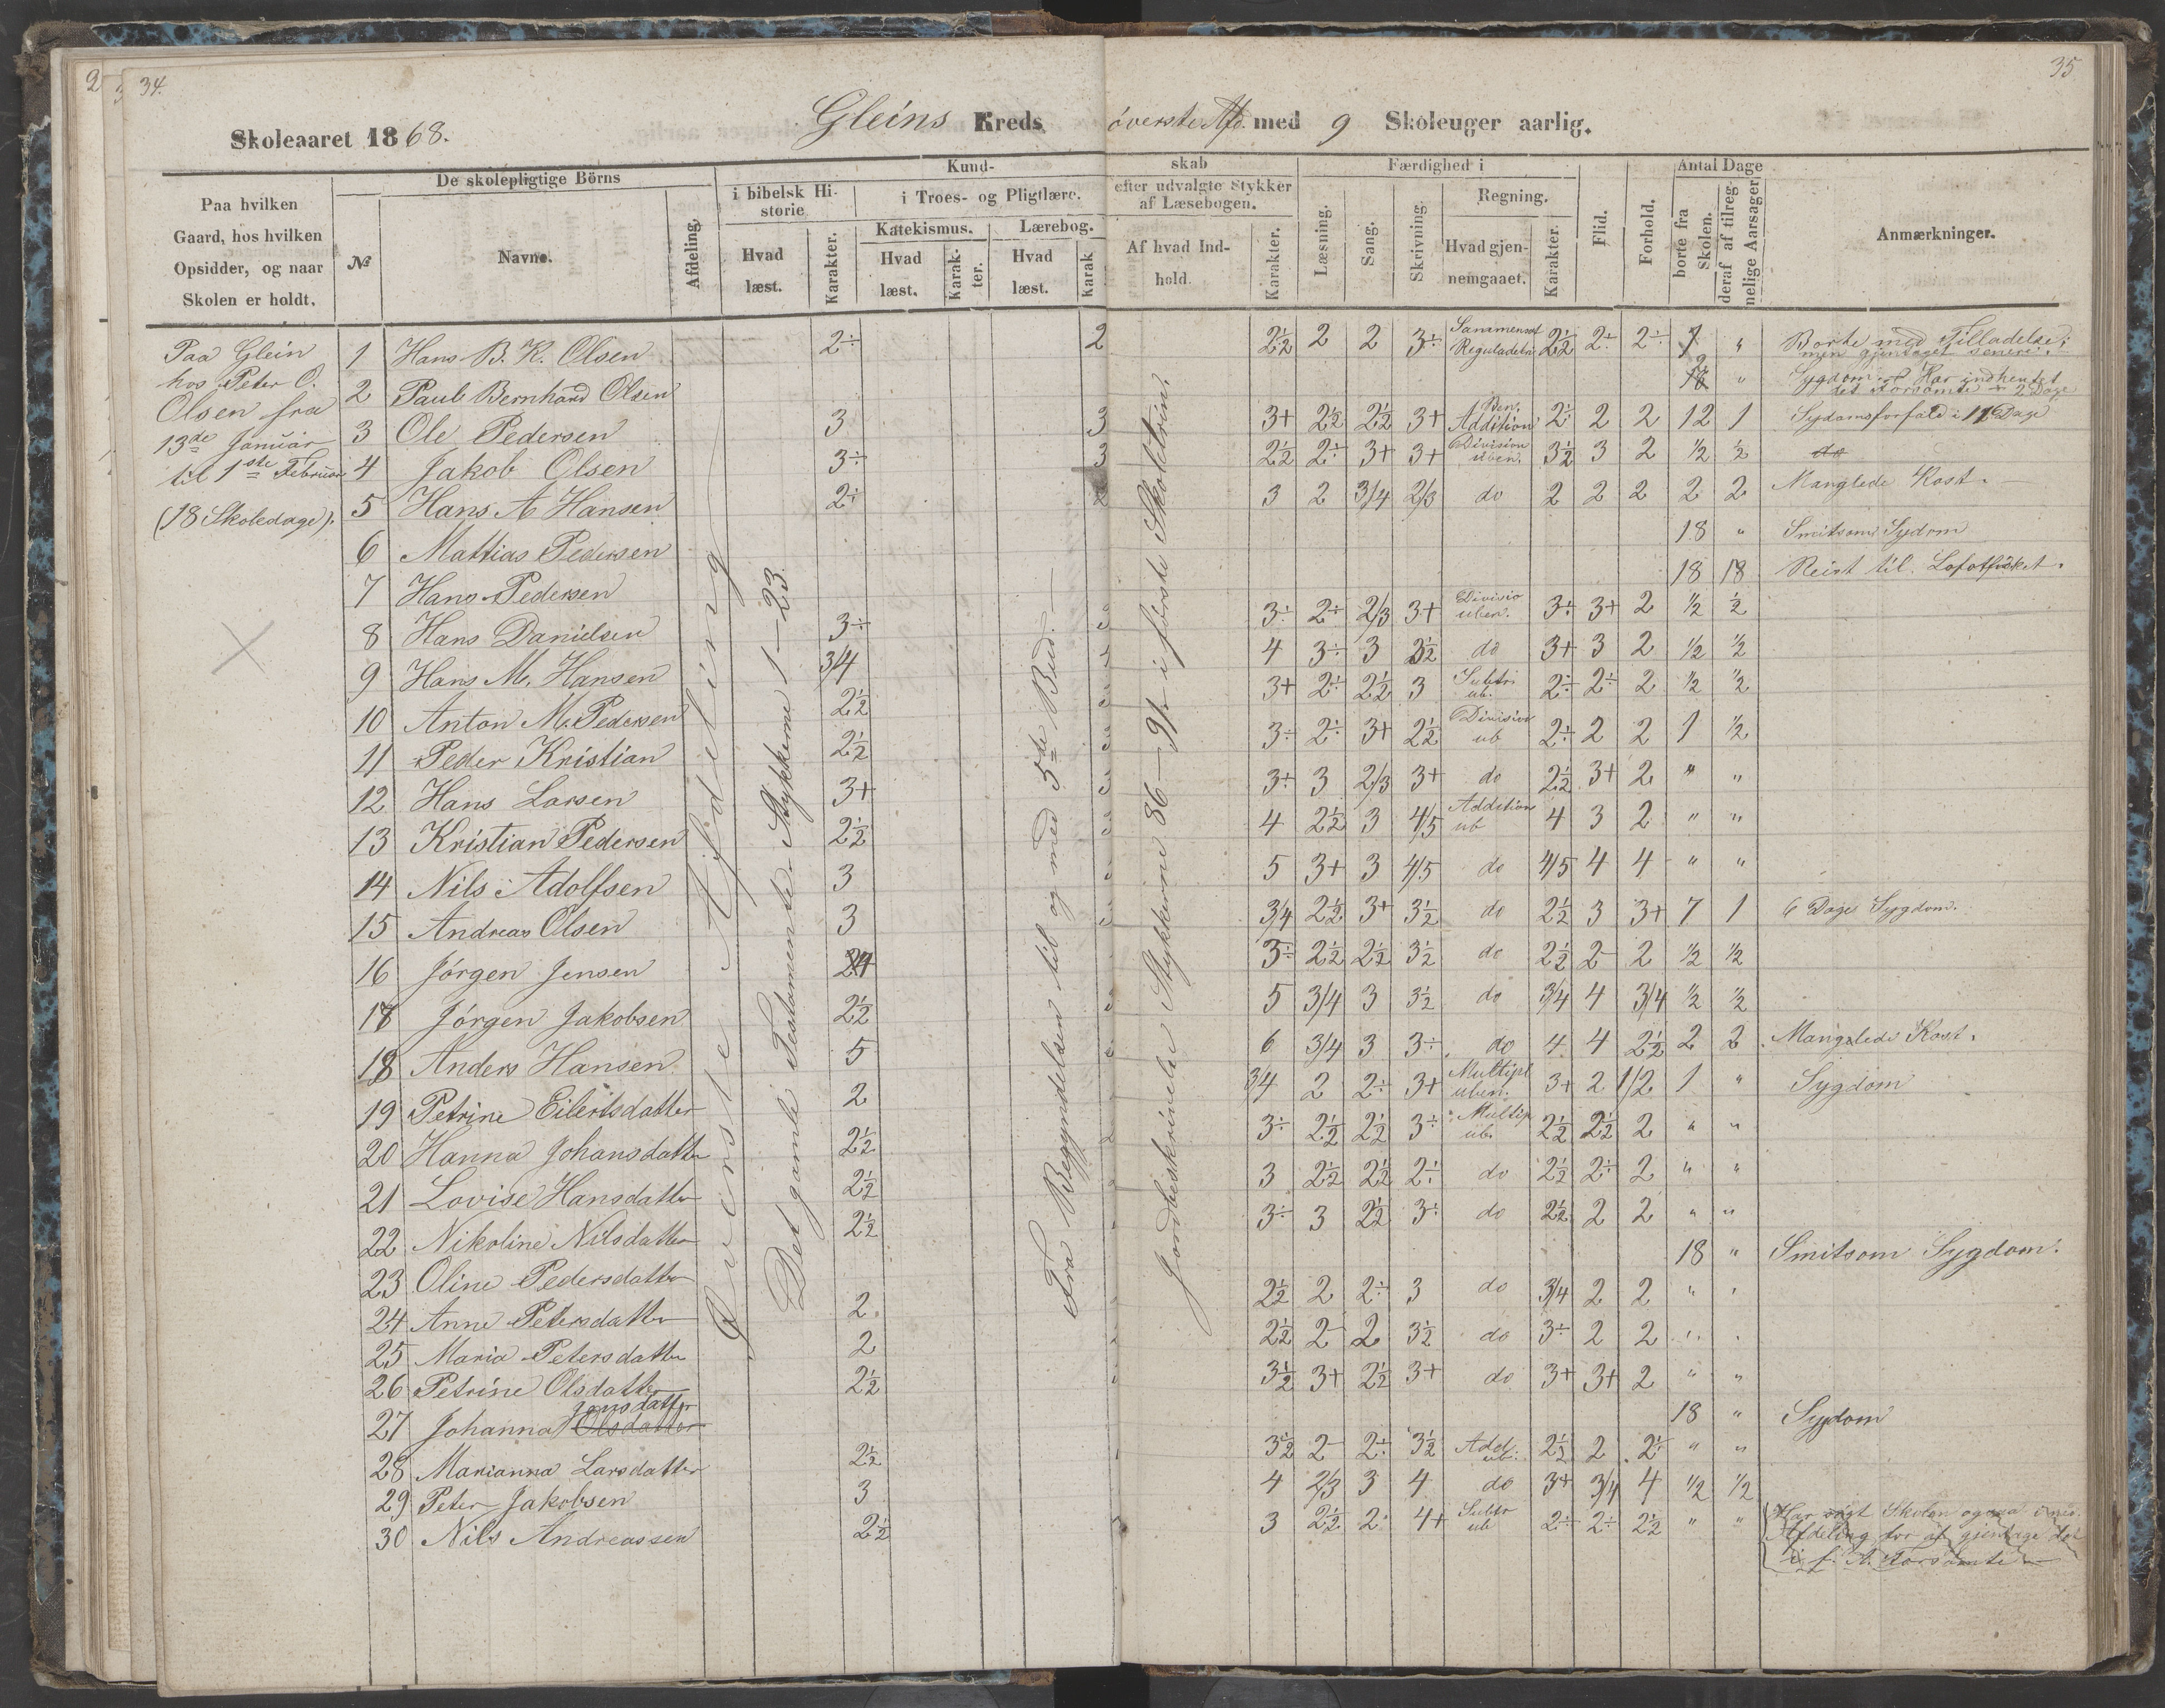 34.
35
Skoleaaret 1868. Gleins Kreds øverste Afd. med 9 Skoleuger aarlig.
Paa hvilken Gaard, hos hvilken Opsidder, og naar Skolen er holdt.
De skolepligtige Börns
№ Navne. Afdeling.
Kundskab
i bibelsk Historie
Hvad læst. Karakter.
i Troes- og Pligtlære.
Katekismus. Hvad læst. Karakter.
Lærebog. Hvad læst. Karak
efter udvalgte Stykker af Læsebogen.
Af hvad Indhold. Karakter.
Færdighed i
Læsning. Sang. Skrivning.
Regning. Hvad gjennemgaaet. Karakter.
Flid. Forhold.
Antal Dage
borte fra Skolen. deraf af tilregnelige Aarsager
Anmærkninger.
Paa Glein
hos Peter O.
Olsen fra
13de Januar
til 1ste Februar
(18 Skoledage).
Øverste Afdeling
Det gamle Testamente Stykkerne 1-23.
Fra Begyndelsen til og med 5de Bud.
Jordbeskrivelse Stykkerne 86-91 i første Skoletrin.
1 Hans B. K. Olsen 2÷ 2 2½ 2 2 3÷ Sammensat Reguladetri 2½ 2÷ 2÷ 7 " Borte med Tilladelse; men gjentaget senere.
2 Paul Bernhard Olsen 18 " Sygdom. Har indhentet det forsømte 2 Dage
3 Ole Pedersen 3 3 3+ 2½ 2½ 3+ Ben. Addition 2÷ 2 2 12 1 Sydomsforfald i 11 Dage
4 Jakob Olsen 3÷ 3 2½ 2÷ 3+ 3+ Division uben. 3½ 3 2 ½ ½ do
5 Hans A Hansen 2÷ 2 3 2 3/4 2/3 do 2 2 2 2 2 Manglede Kost.
6 Mattias Pedersen 18 " Smitsom Sydom
7 Hans Pedersen 18 18 Reist til Lofotfisket.
8 Hans Danielsen 3÷ 3 3÷ 2÷ 2/3 3+ Divisio uben. 3÷ 3+ 2 ½ ½
9 Hans M. Hansen 3/4 4 4 3÷ 3 3½ do 3+ 3 2 ½ ½
10 Anton M. Pedersen 2½ 3 3+ 2÷ 2½ 3 Subtr. ub. 2÷ 2÷ 2 ½ ½
11 Peder Kristian 2½ 3 3÷ 2÷ 3+ 2½ Division ub 2÷ 2 2 1 ½
12 Hans Larsen 3+ 3 3÷ 3 2/3 3+ do 2½ 3+ 2 " "
13 Kristian Pedersen 2½ 3 4 2½ 3 4/5 Addition ub 4 3 2 " "
14 Nils Adolfsen 3 5 3+ 3 4/5 do 4/5 4 4 " "
15 Andreas Olsen 3 3 3/4 2½ 3+ 3½ do 2½ 3 3+ 7 1 6 Dage Sygdom.
16 Jørgen Jensen 3÷ 2½ 2½ 3½ do 2½ 2 2 ½ ½
17 Jørgen Jakobsen 2½ 5 3/4 3 3½ do 3/4 4 3/4 ½ ½
18 Anders Hansen 5 6 3/4 3 3÷ do 4 4 2½ 2 2 Manglede Kost.
19 Petrine Eilertsdatter 2 3/4 2 2÷ 3+ Multipl uben. 3+ 2 1/2 1 " Sygdom
20 Hanna Johansdatter 2½ 2 3÷ 2½ 2½ 3÷ Multip ub. 2½ 2½ 2 " "
21 Lovise Hansdatter 2½ 3 2½ 2½ 2÷ do 2½ 2÷ 2 " "
22 Nikoline Nilsdatter 2½ 3÷ 3 2½ 3÷ do 2½ 2 2 " "
23 Oline Pedersdatter 18 " Smitsom Sygdom.
24 Anne Petersdatter 2 2½ 2 2÷ 3 do 3/4 2 2 " "
25 Maria Petersdatter 2 2 2½ 2 2 3½ do 3÷ 2 2 " "
26 Petrine Olsdatter 2½ 3½ 3+ 2½ 3+ do 3+ 3+ 2 " "
27 Johanna Olsdatter Jensdatter 18 " Sydom
28 Marianna Larsdatter 2½ 3½ 2 2÷ 3½ Add. ub. 2½ 2 2÷ " "
29 Peter Jakobsen 3 4 2/3 3 4 do 3+ 3/4 4 ½ ½
30 Nils Andreassen 2½ 3 2½ 2 4+ Subtr ub 2÷ 2÷ 2½ " " Har søgt Skolen ogsaa i
Afdeling for at gjentage det
i f. A. Forsømte